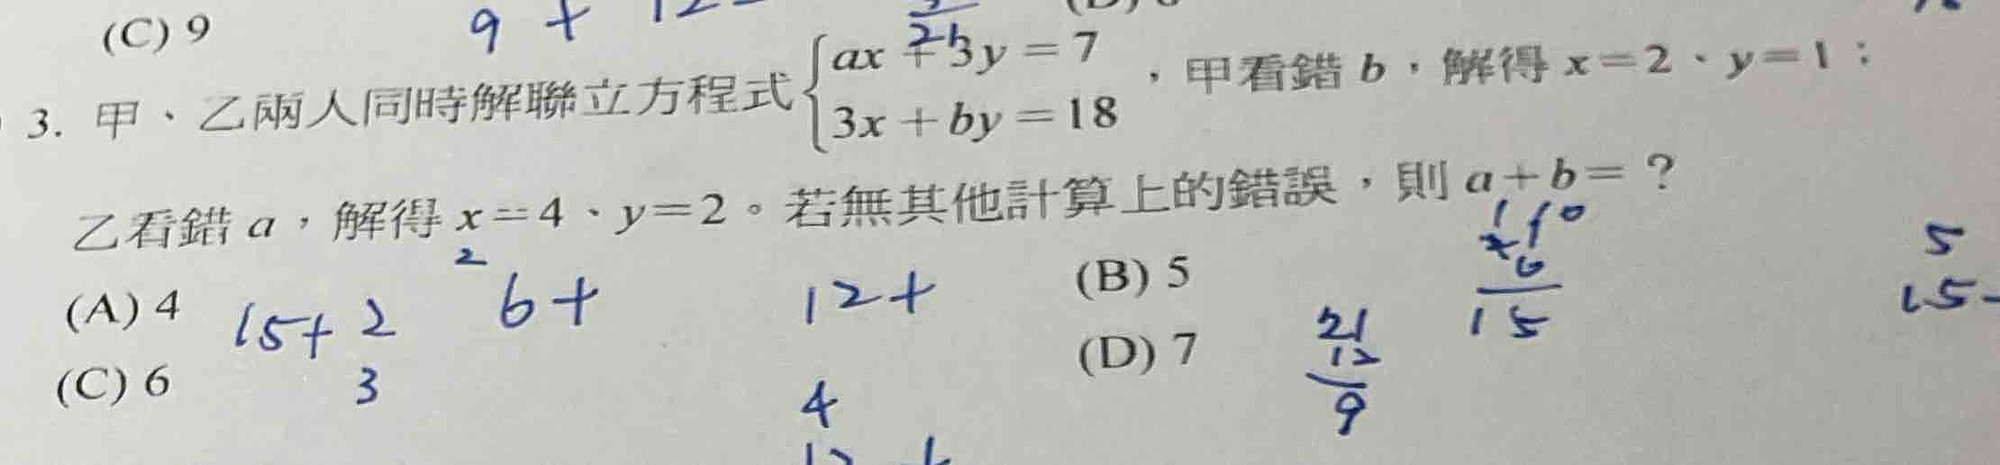 (C) 9
9 + 12
3. 甲、乙兩人同時解聯立方程式 { ax + 3y = 7
3x + by = 18 ，甲看錯 b，解得 x = 2、y = 1；
乙看錯 a，解得 x = 4、y = 2。若無其他計算上的錯誤，則 a + b = ？
(A) 4
(B) 5
(C) 6
(D) 7
15+ 2
3
2
6+
12+
4
15
21
12
9
5
15-